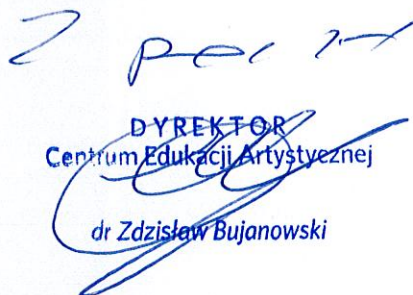 DYREKTOR
Centrum Edukacji Artystycznej
dr Zdzisław Bujanowski